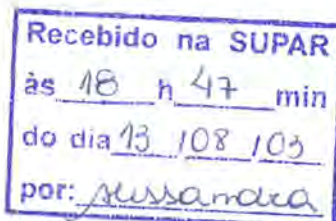 Recebido na SUPAR
às 18 h 47 min
do dia 13 /08 /03
por: Alessandra